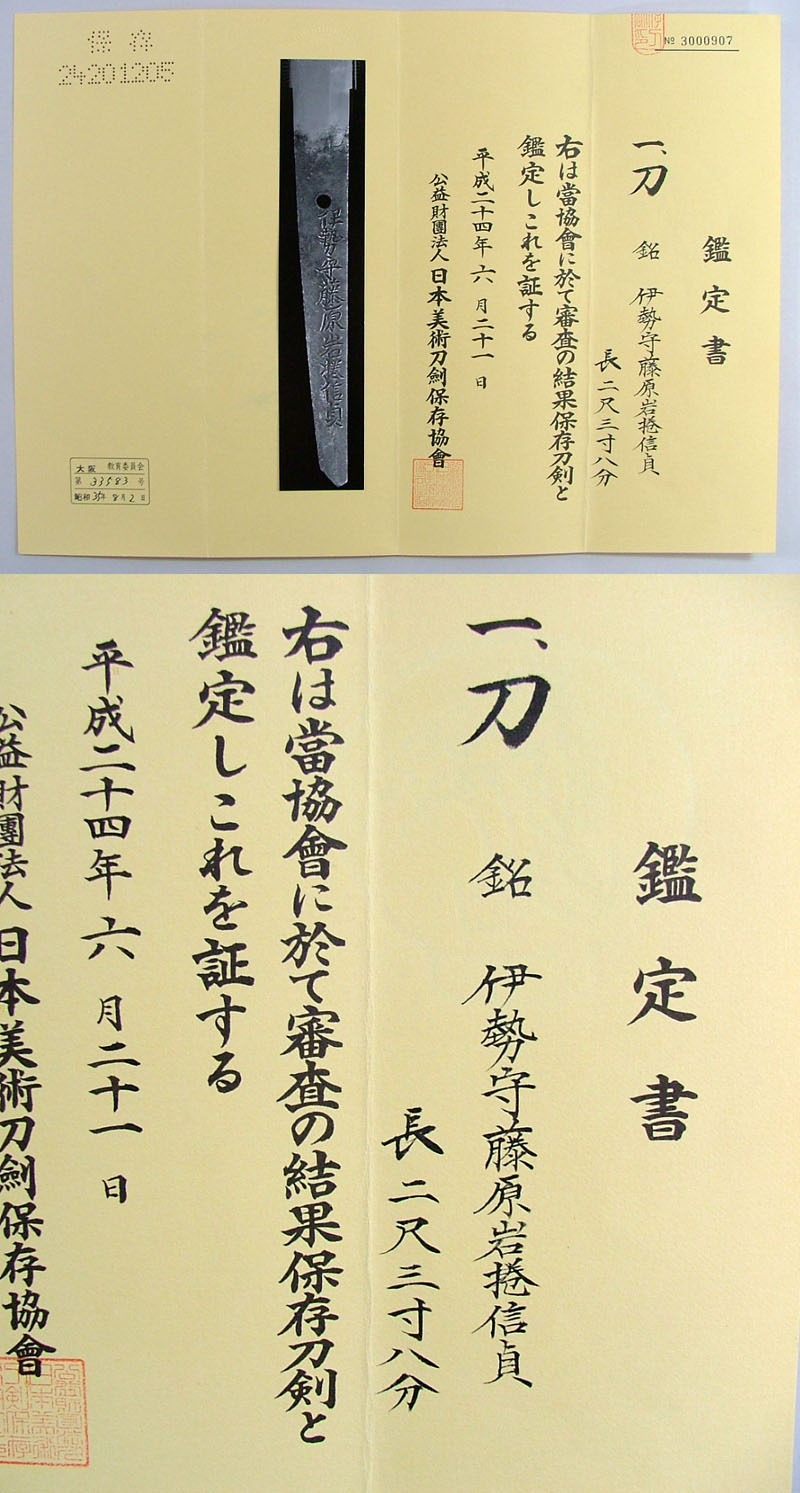 № 3000907
鑑定書
一、刀 銘 伊勢守藤原岩捲信貞
長二尺三寸八分
右は當協會に於て審査の結果保存刀剣と
鑑定しこれを証する
平成二十四年六月二十一日
公益財團法人日本美術刀劍保存協會
伊勢守藤原岩捲信貞
保存
24201205
大阪 教育委員会
第 33583 号
昭和35年8月2日
鑑定書
一、刀 銘 伊勢守藤原岩捲信貞
長二尺三寸八分
右は當協會に於て審査の結果保存刀剣と
鑑定しこれを証する
平成二十四年六月二十一日
公益財團法人日本美術刀劍保存協會